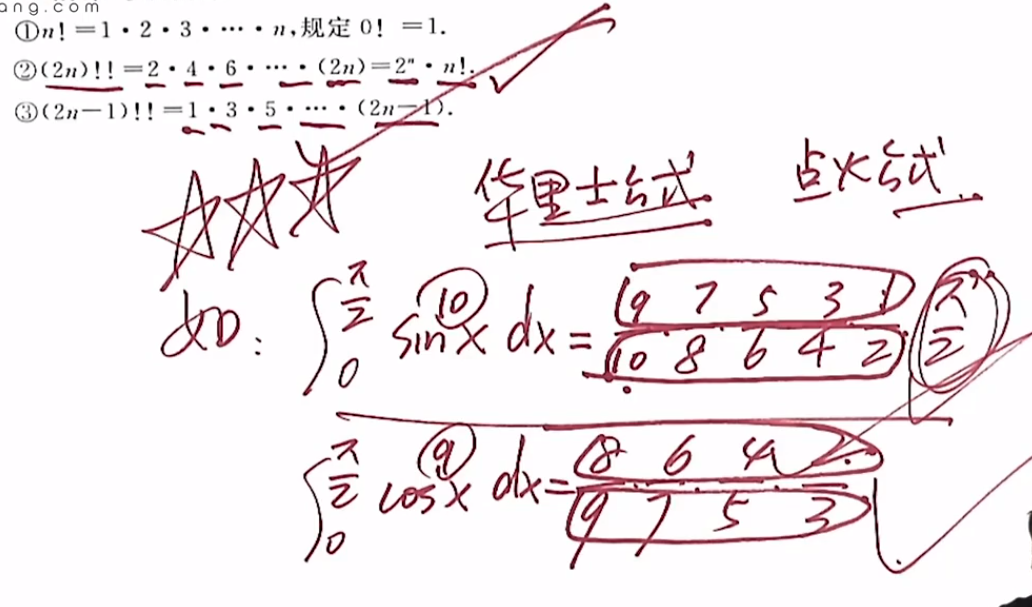 ang.com
①n!=1·2·3·…·n,规定 0! =1.
②(2n)!!=2·4·6·…·(2n)=2ⁿ·n!.
③(2n-1)!!=1·3·5·…·(2n-1).
华里士公式 点火公式
如: ∫₀^(π/2) sin¹⁰x dx = 9/10 · 7/8 · 5/6 · 3/4 · 1/2 · π/2
∫₀^(π/2) cos⁹x dx = 8/9 · 6/7 · 4/5 · 2/3